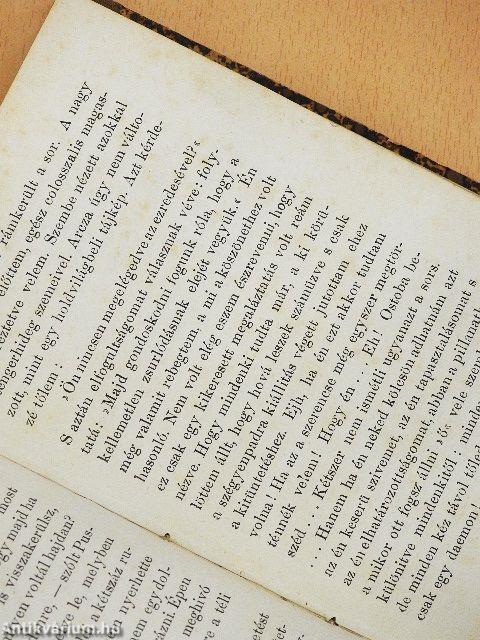 rámkerült a sor. A nagy
előttem, egész colosszális magas-
eztetve velem. Szembe nézett azokkal
engerhideg szemeivel. Arcza úgy nem válto-
zott, mint egy holdvilágbali tájkép. Azt kérde-
zé tőlem:
›Ön nincsen megelégedve az ezredesével?‹
S aztán elfogultságomat válasznak véve: foly-
tatá: ›Majd gondoskodni fogunk róla, hogy a
kellemetlen zsurlódásnak elejét vegyük.‹ Én
még valamit rebegtem, a mi a köszönethez volt
hasonló. Nem volt elég eszem észrevenni, hogy
ez csak egy kikeresett megaláztatás volt, reám
nézve. Hogy mindenki tudta már, a ki körü-
löttem állt, hogy hová leszek száműzve s csak
a szégyenpadra kiállítás végett jutottam ehez
a kitüntetéshez. Ejh, ha én ezt akkor tudtam
volna! Ha az a szerencse még egyszer megtör-
ténnék velem! Hogy én . . . Eh! Ostoba be-
széd . . . Kétszer nem ismétli ugyanazt a sors.
. . . Hanem ha én neked kölcsön adhatnám azt
az én keserű szívemet, az én tapasztalásomat s
az én elhatározottságomat, abban a pillanat
a mikor ott fogsz állni ›ő‹ vele szem
különítve mindenkitől: minde
de minden kéz távol tőled
csak egy daemon!
most
gy majd ha
s visszakerülsz,
en voltál hajdan?
ve, — szólt Pus-
le, melyben
kétszáz ru-
nyerhette
em egy dol-
rázni. Épen
meghívó
e a téli
Antikvárium.hu